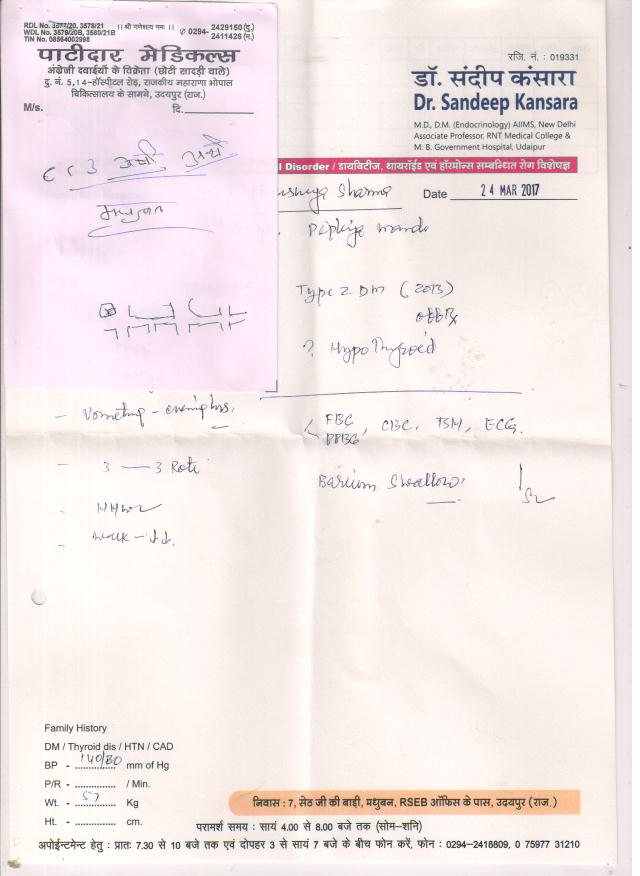 RDL No. 3577/20, 3578/21
WDL No. 3579/20B, 3580/21B
TIN No. 08564002998
।। श्री गणेशाय नमः ।।
0294- 2429160 (दु.)
2411426 (नि.)
पाटीदार मेडिकल्स
अंग्रेजी दवाईयों के विक्रेता (छोटी सादड़ी वाले)
दु. नं. 5,14-हॉस्पीटल रोड़, राजकीय महाराणा भोपाल
चिकित्सालय के सामने, उदयपुर (राज.)
M/s. दि.
रजि. नं. : 019331
डॉ. संदीप कंसारा
Dr. Sandeep Kansara
M.D., D.M. (Endocrinology) AIIMS, New Delhi
Associate Professor, RNT Medical College &
M. B. Government Hospital, Udaipur
l Disorder / डायबिटीज, थायरॉईड एवं हॉरमोन्स सम्बन्धित रोग विशेषज्ञ
Sharma
Date 24 MAR 2017
Type 2 DM (2013)
? HypoThyroid
- Vometing -
FBG, CBC, TSH, ECG.
PPBG
- 3 — 3 Roti
Barium Swallow
- walk -
Family History
DM / Thyroid dis / HTN / CAD
BP - 140/80 mm of Hg
P/R- / Min.
Wt. - 57 Kg
Ht. - cm.
निवास : 7, सेठ जी की बाड़ी, मधुबन, RSEB ऑफिस के पास, उदयपुर (राज.)
परामर्श समय : सायं 4.00 से 8.00 बजे तक (सोम-शनि)
अपोईन्टमेन्ट हेतु : प्रातः 7.30 से 10 बजे तक एवं दोपहर 3 से सायं 7 बजे के बीच फोन करें, फोन : 0294-2418809, 0 75977 31210